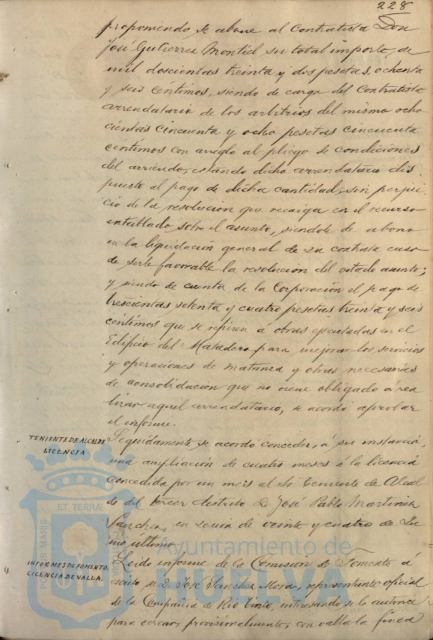 228
proponiendo se abone al Contratista Don
José Gutierrez Montiel su total importe, de
mil doscientas treinta y dos pesetas, ochenta
y seis centimos, siendo de cargo del Contratista
arrendatario de los arbitrios del mismo ocho
cientas cincuenta y ocho pesetas cincuenta
centimos con arreglo al pliego de condiciones
del arriendo, estando dicho arrendatario dis
puesto al pago de dicha cantidad, sin perjui
cio de la resolucion que recaiga en el recurso
entablado sobre el asunto, siendole de abono
en la liquidacion general de su contrata caso
de serle favorable la resolucion del citado asunto;
y siendo de cuenta de la Corporacion el pago de
trescientas setenta y cuatro pesetas treinta y seis
centimos que se refieren á obras ejecutadas en el
Edificio del Matadero para mejorar los servicios
y operaciones de matanza y obras necesarias
de consolidacion que no viene obligado á rea
lizar aquel arrendatario, se acordó aprobar
el informe.
TENIENTE DE ALCALDE
LICENCIA
Seguidamente, se acordó conceder, á su instancia,
una ampliacion de cuatro meses á la licencia
concedida por un mes al Sr Teniente de Alcal
de del tercer distrito D. José Pablo Martinez
Sanchez, en sesion de veinte y cuatro de
último.
INFORMES DE FOMENTO.
LICENCIA DE VALLA.
Leido informe de la Comision de Fomento á
escrito de D. José Sanchez Mora, representante oficial
de la Compañia de Rio Tinto, interesando se le autorice
para cercar, provisionalmente, con valla la finca
PORTUS MARIS ET TERRÆ
Ayuntamiento de
HUELVA